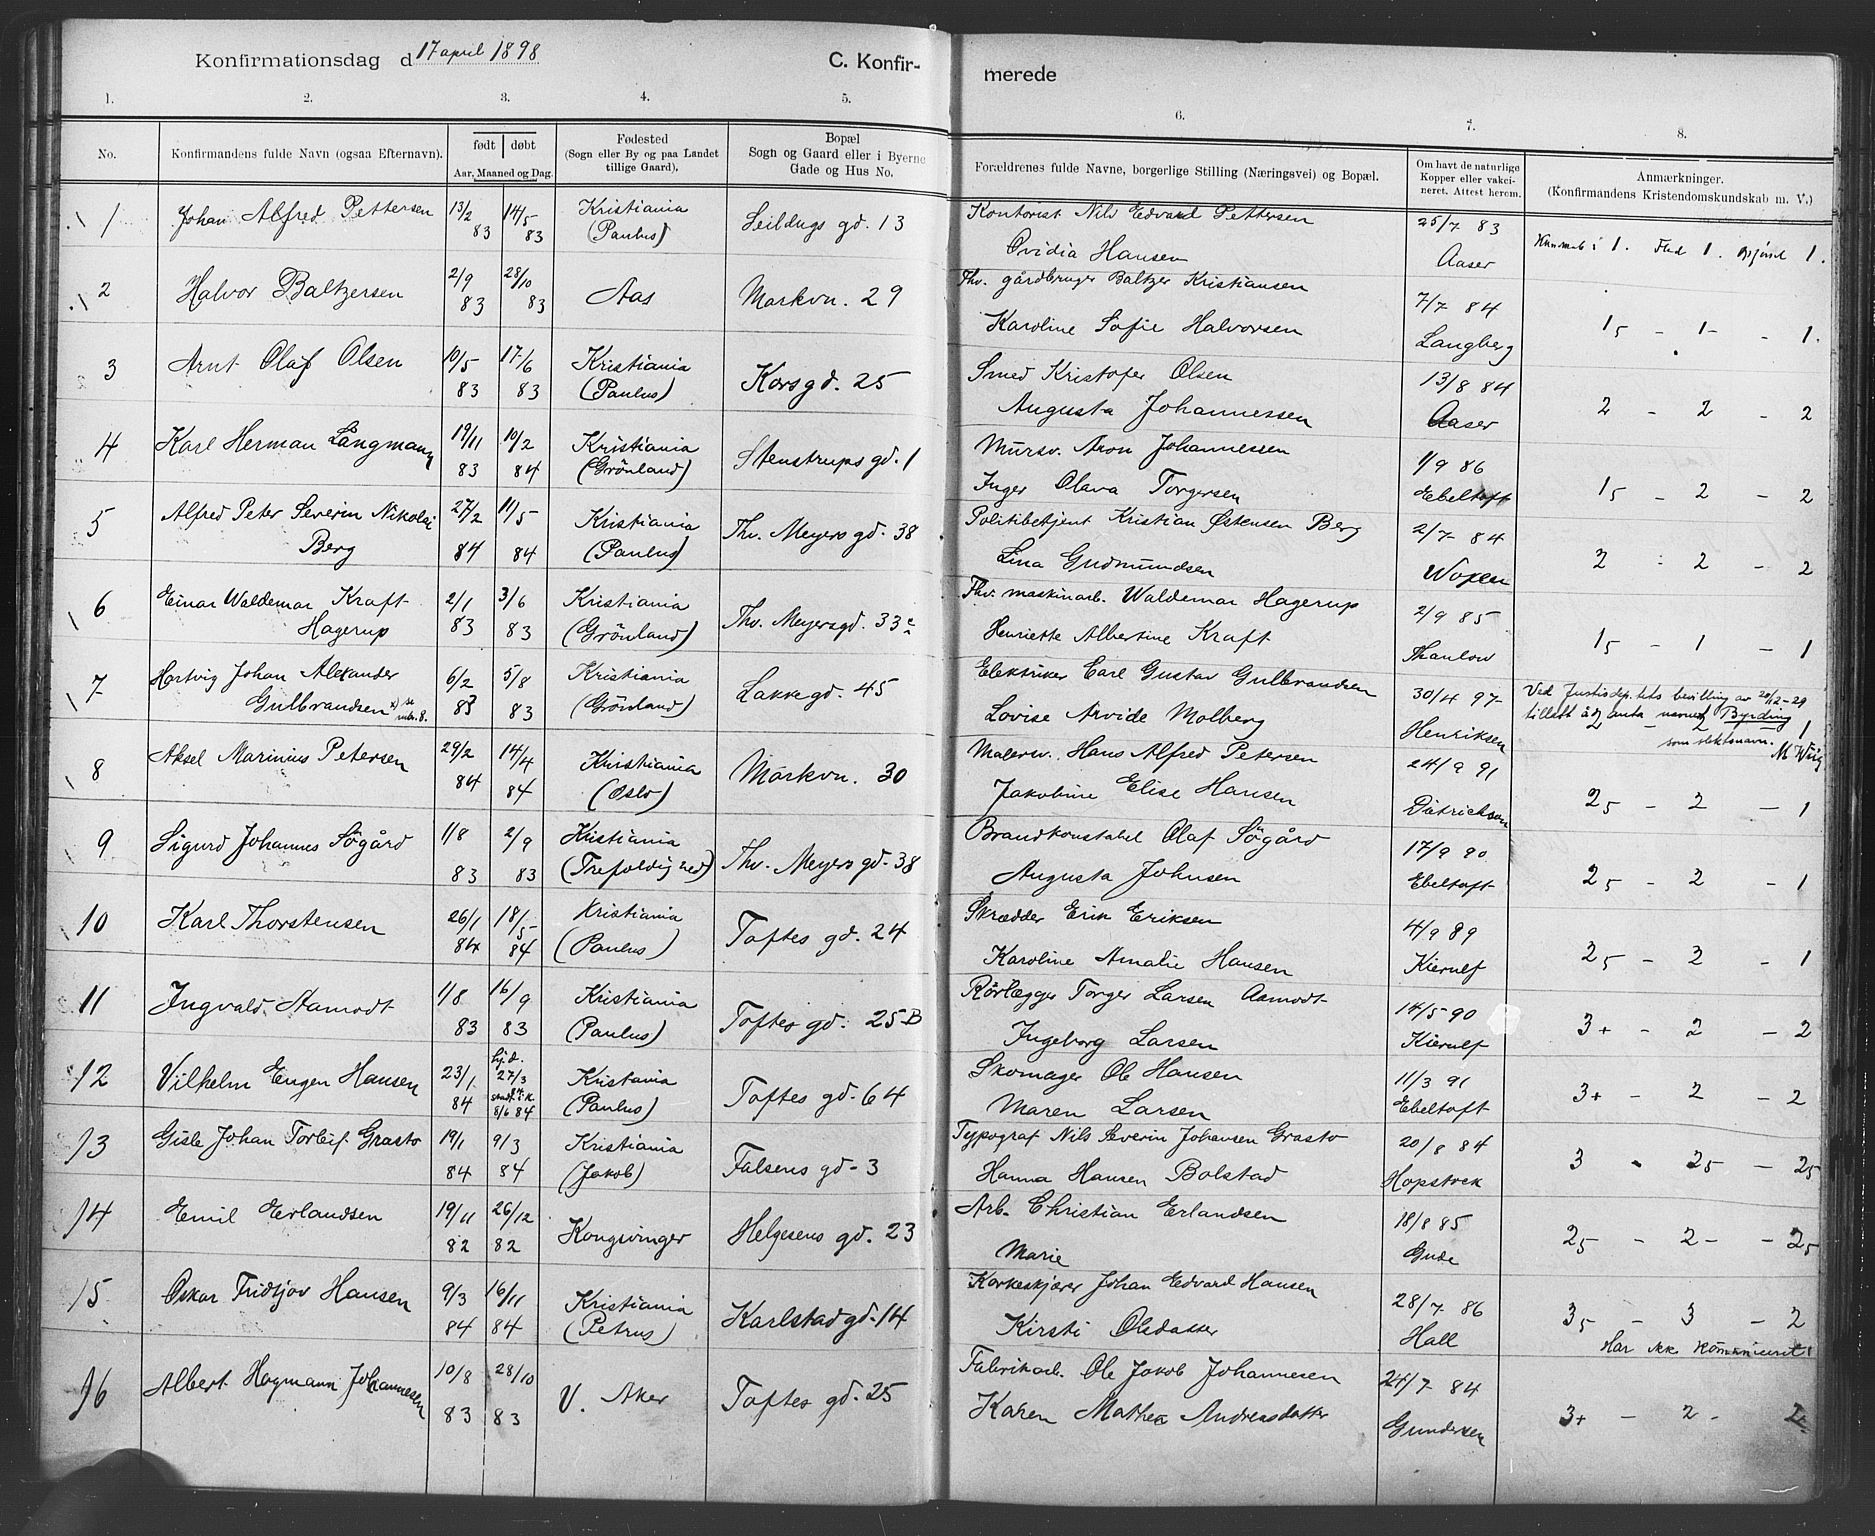 Konfirmationsdag d 17 april 1898
C. Konfir-
merede
1. 2. 3. 4. 5. 6. 7. 8.
No.
Konfirmandens fulde Navn (ogsaa Efternavn).
født døbt
Aar, Maaned og Dag.
Fødested
(Sogn eller By og paa Landet
tillige Gaard).
Bopæl
Sogn og Gaard eller i Byerne
Gade og Hus No.
Forældrenes fulde Navne, borgerlige Stilling (Næringsvei) og Bopæl.
Om havt de naturlige
Kopper eller vakci-
neret. Attest herom.
Anmærkninger.
(Konfirmandens Kristendomskundskab m. V.)
1 Johan Alfred Pettersen 13/2 83 14/5 83 Kristiania (Paulus) Seildugs gd. 13 Kontorist Nils Edvard Pettersen 25/7 83
Ovidia Hansen Aaser 1. Flid 1. 1.
2 Halvor Baltzersen 2/9 83 28/10 83 Aas Markvn. 29 Thv. gårdbruger Baltzer Kristiansen 7/7 84
Karoline Sofie Halvorsen Langberg 15 - 1 - 1.
3 Arnt Olaf Olsen 10/5 83 17/6 83 Kristiania (Paulus) Korsgd. 25 Smed Kristofer Olsen 13/8 84
Augusta Johannessen Aaser 2 - 2 - 2
4 Karl Herman Langmann 19/11 83 10/2 84 Kristiania (Grönland) Stenstrups gd. 1 Mursv. Aron Johannessen 1/9 86
Inger Olava Torgersen Ebeltoft 15 - 2 - 2
5 Alfred Peter Severin Nikolai Berg 27/2 84 11/5 84 Kristiania (Paulus) Thv. Meyers gd. 38 Politibetjent Kristian Østensen Berg 2/7 84
Lina Gudmundsen Woxen 2 - 2 - 2
6 Einar Waldemar Kraft Hagerup 2/1 83 3/6 83 Kristiania (Grönland) Thv. Meyersgd. 33c Thv. maskinarb. Waldemar Hagerup 2/9 85
Henriette Albertine Kraft Thaulow 15 - 1 - 1
7 Hartvig Johan Alexander Gulbrandsen x) se mrk. 8. 6/2 83 5/8 83 Kristiania (Grönland) Lakkegd. 45 Elektriker Carl Gustav Gulbrandsen 30/4 97
Lovise Arvide Molberg Henriksen 2 - 2 - 1
Ved Justisdep.tets bevilling av 20/12-29
tillatt å anta navnet Byrding
som slektsnavn.
8 Aksel Marinius Petersen 29/2 84 14/4 84 Kristiania (Oslo) Markvn. 30 Malersv. Hans Alfred Petersen 24/9 91
Jakobine Elise Hansen Patrickson 25 - 2 - 1
9 Sigurd Johannes Sögård 1/8 83 2/9 83 Kristiania (Trefoldighed) Thv. Meyers gd. 38 Brandkonstabel Olaf Sögård 17/9 90
Augusta Johnsen Ebeltoft 25 - 2 - 1
10 Karl Thorstensen 26/1 84 18/5 84 Kristiania (Paulus) Toftes gd. 24 Skrædder Erik Eriksen 4/9 89
Karoline Amalie Hansen Kierulf 25 - 2 - 1
11 Ingvald Aamodt 1/8 83 16/9 83 Kristiania (Paulus) Toftes gd. 25B Rörlægger Torger Larsen Aamodt 14/5 90
Ingeborg Larsen Kierulf 3+ - 2 - 2
12 Vilhelm Eugen Hansen 23/1 84 hj.d. 27/3 84 8/6 84 Kristania (Paulus) Toftes gd. 64 Skomager Ole Hansen 11/3 91
Maren Larsen Ebeltoft 3+ - 2 - 2
13 Gisle Johan Torleif Grasto 19/1 84 9/3 84 Kristiania (Jakob) Falsens gd. 3 Typograf Nils Severin Johansen Grasto 20/8 84
Hanna Hansen Bolstad Hopstock 3 - 25 - 25
14 Emil Erlandsen 19/11 82 26/12 82 Kongsvinger Helgesens gd. 23 Arb. Christian Erlandsen 18/8 85
Marie Gude 25 - 2 - 25
15 Oskar Fridtjov Hansen 9/3 84 16/11 84 Kristiania (Petrus) Karlstadgd. 14 Korkeskjærer Johan Edvard Hansen 28/7 86
Kirsti Olsdatter Hall 35 - 3 - 2
Har ikke kommuniceret!
16 Albert Hagmann Johannesen 10/8 83 28/10 83 V. Aker Toftes gd. 25 Fabrikarb. Ole Jakob Johannesen 24/7 84
Karen Mathea Andreasdatter Gundersen 3+ - 2 - 2